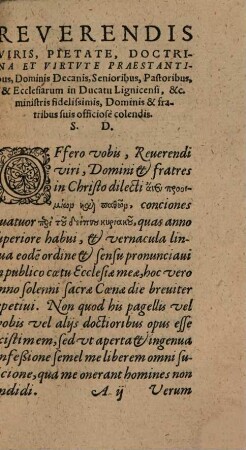 REVERENDIS
VIRIS, PIETATE, DOCTRI-
NA ET VIRTVTE PRAESTANTI
bus, Dominis Decanis, Senioribus, Pastoribus,
& Ecclesiarum in Ducatu Lignicensi, &c.
ministris fidelissimis, Dominis & fra-
tribus suis officiosè colendis.
S. D.
OFfero vobis, Reuerendi
viri, Domini & fratres
in Christo dilecti ἄνευ προοι-
μίων καὶ παθῶν, conciones
uatuor περὶ τοῦ δείπνου κυριακοῦ, quas anno
uperiore habui, & vernacula lin-
ua eodē ordine & sensu pronunciaui
n publico cœtu Ecclesiæ meæ, hoc vero
nno solenni sacræ Cœnæ die breuiter
epetiui. Non quod his pagellus vel
vobis vel alijs doctioribus opus esse
cistimem, sed vt aperta & ingenua
onfessione semel me liberem omni su-
icione, qua me onerant homines non
ndidi. A ij Verum